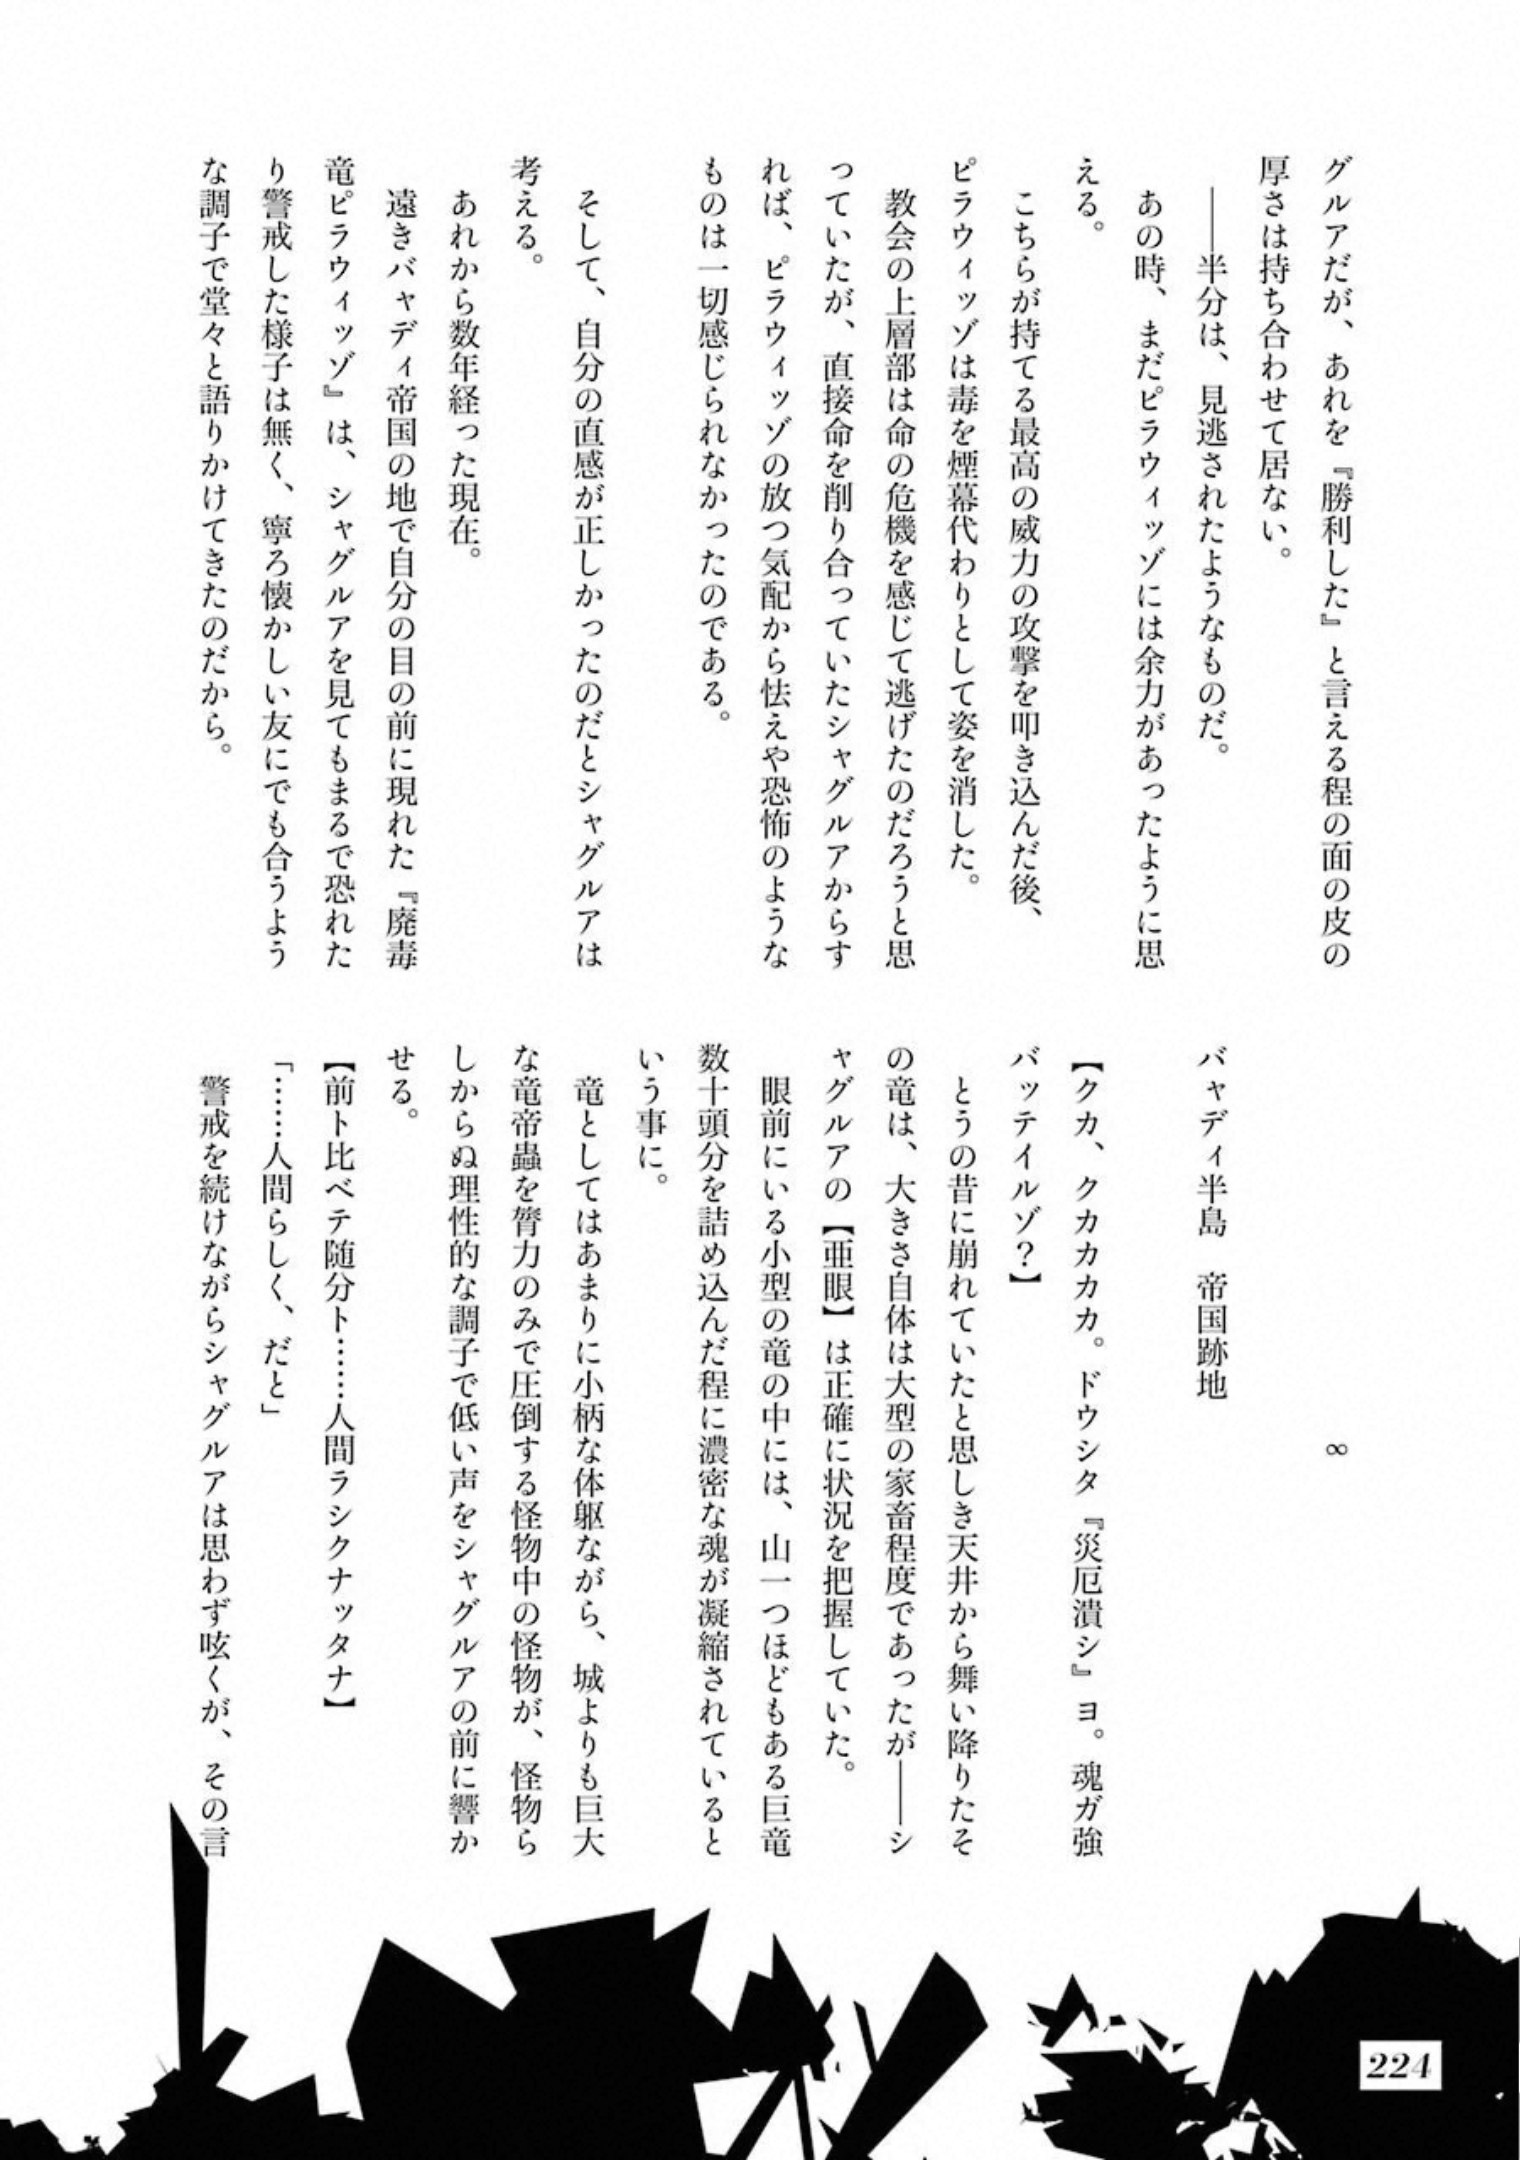 グルアだが、あれを『勝利した』と言える程の面の皮の
厚さは持ち合わせて居ない。
――半分は、見逃されたようなものだ。
あの時、まだピラウィッゾには余力があったように思
える。
こちらが持てる最高の威力の攻撃を叩き込んだ後、
ピラウィッゾは毒を煙幕代わりとして姿を消した。
教会の上層部は命の危機を感じて逃げたのだろうと思
っていたが、直接命を削り合っていたシャグルアからす
れば、ピラウィッゾの放つ気配から怯えや恐怖のような
ものは一切感じられなかったのである。
そして、自分の直感が正しかったのだとシャグルアは
考える。
あれから数年経った現在。
遠きバャディ帝国の地で自分の目の前に現れた『廃毒
竜ピラウィッゾ』は、シャグルアを見てもまるで恐れた
り警戒した様子は無く、寧ろ懐かしい友にでも合うよう
な調子で堂々と語りかけてきたのだから。
∞
バャディ半島　帝国跡地
【クカ、クカカカカ。ドウシタ『災厄潰シ』ヨ。魂ガ強
バッテイルゾ？】
とうの昔に崩れていたと思しき天井から舞い降りたそ
の竜は、大きさ自体は大型の家畜程度であったが――シ
ャグルアの【亜眼】は正確に状況を把握していた。
眼前にいる小型の竜の中には、山一つほどもある巨竜
数十頭分を詰め込んだ程に濃密な魂が凝縮されていると
いう事に。
竜としてはあまりに小柄な体躯ながら、城よりも巨大
な竜帝蟲を膂力のみで圧倒する怪物中の怪物が、怪物ら
しからぬ理性的な調子で低い声をシャグルアの前に響か
せる。
【前ト比ベテ随分ト……人間ラシクナッタナ】
「……人間らしく、だと」
警戒を続けながらシャグルアは思わず呟くが、その言
224